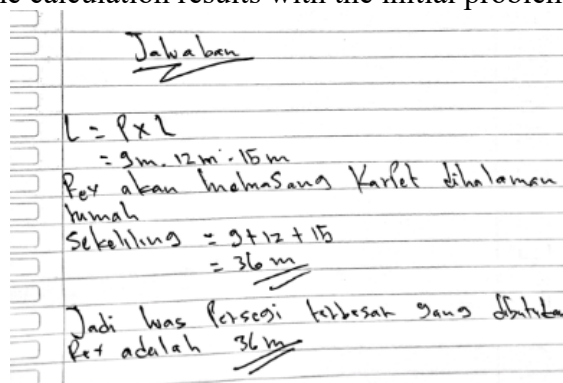 e calculation results with the initial problem
Jawaban
L = P x L
= 9m. 12m. 15m
Rey akan memasang Karpet dihalaman
rumah
Sekeliling = 9+12+15
= 36 m
Jadi luas Persegi terbesar yang dibutuhkan
Rey adalah 36 m